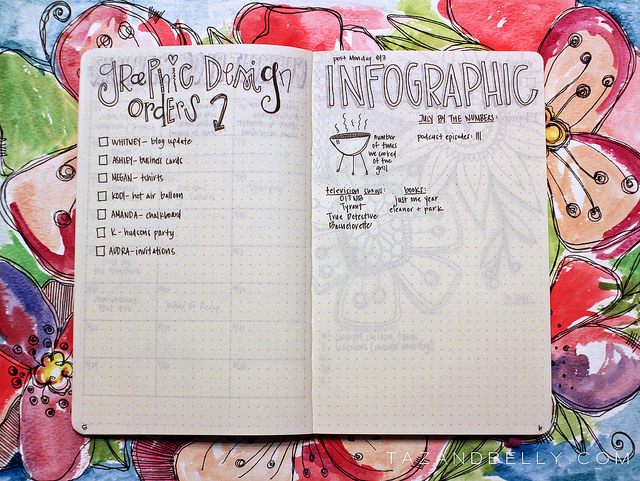 graphic Design
orders
WHITNEY- blog update
ASHLEY- business cards
MEGAN- tshirts
KODI- hot air balloon
AMANDA- chalkboard
K- hudsons party
AUDRA- invitations
post Monday 8/3
INFOGRAPHIC
JULY BY THE NUMBERS:
number
of times
we cooked
of the
grill
podcast episodes: III
television shows:
OITNB
Tyrant
True Detective
Bachelorette
books:
just one year
eleanor + park
TAZANDBELLY.COM